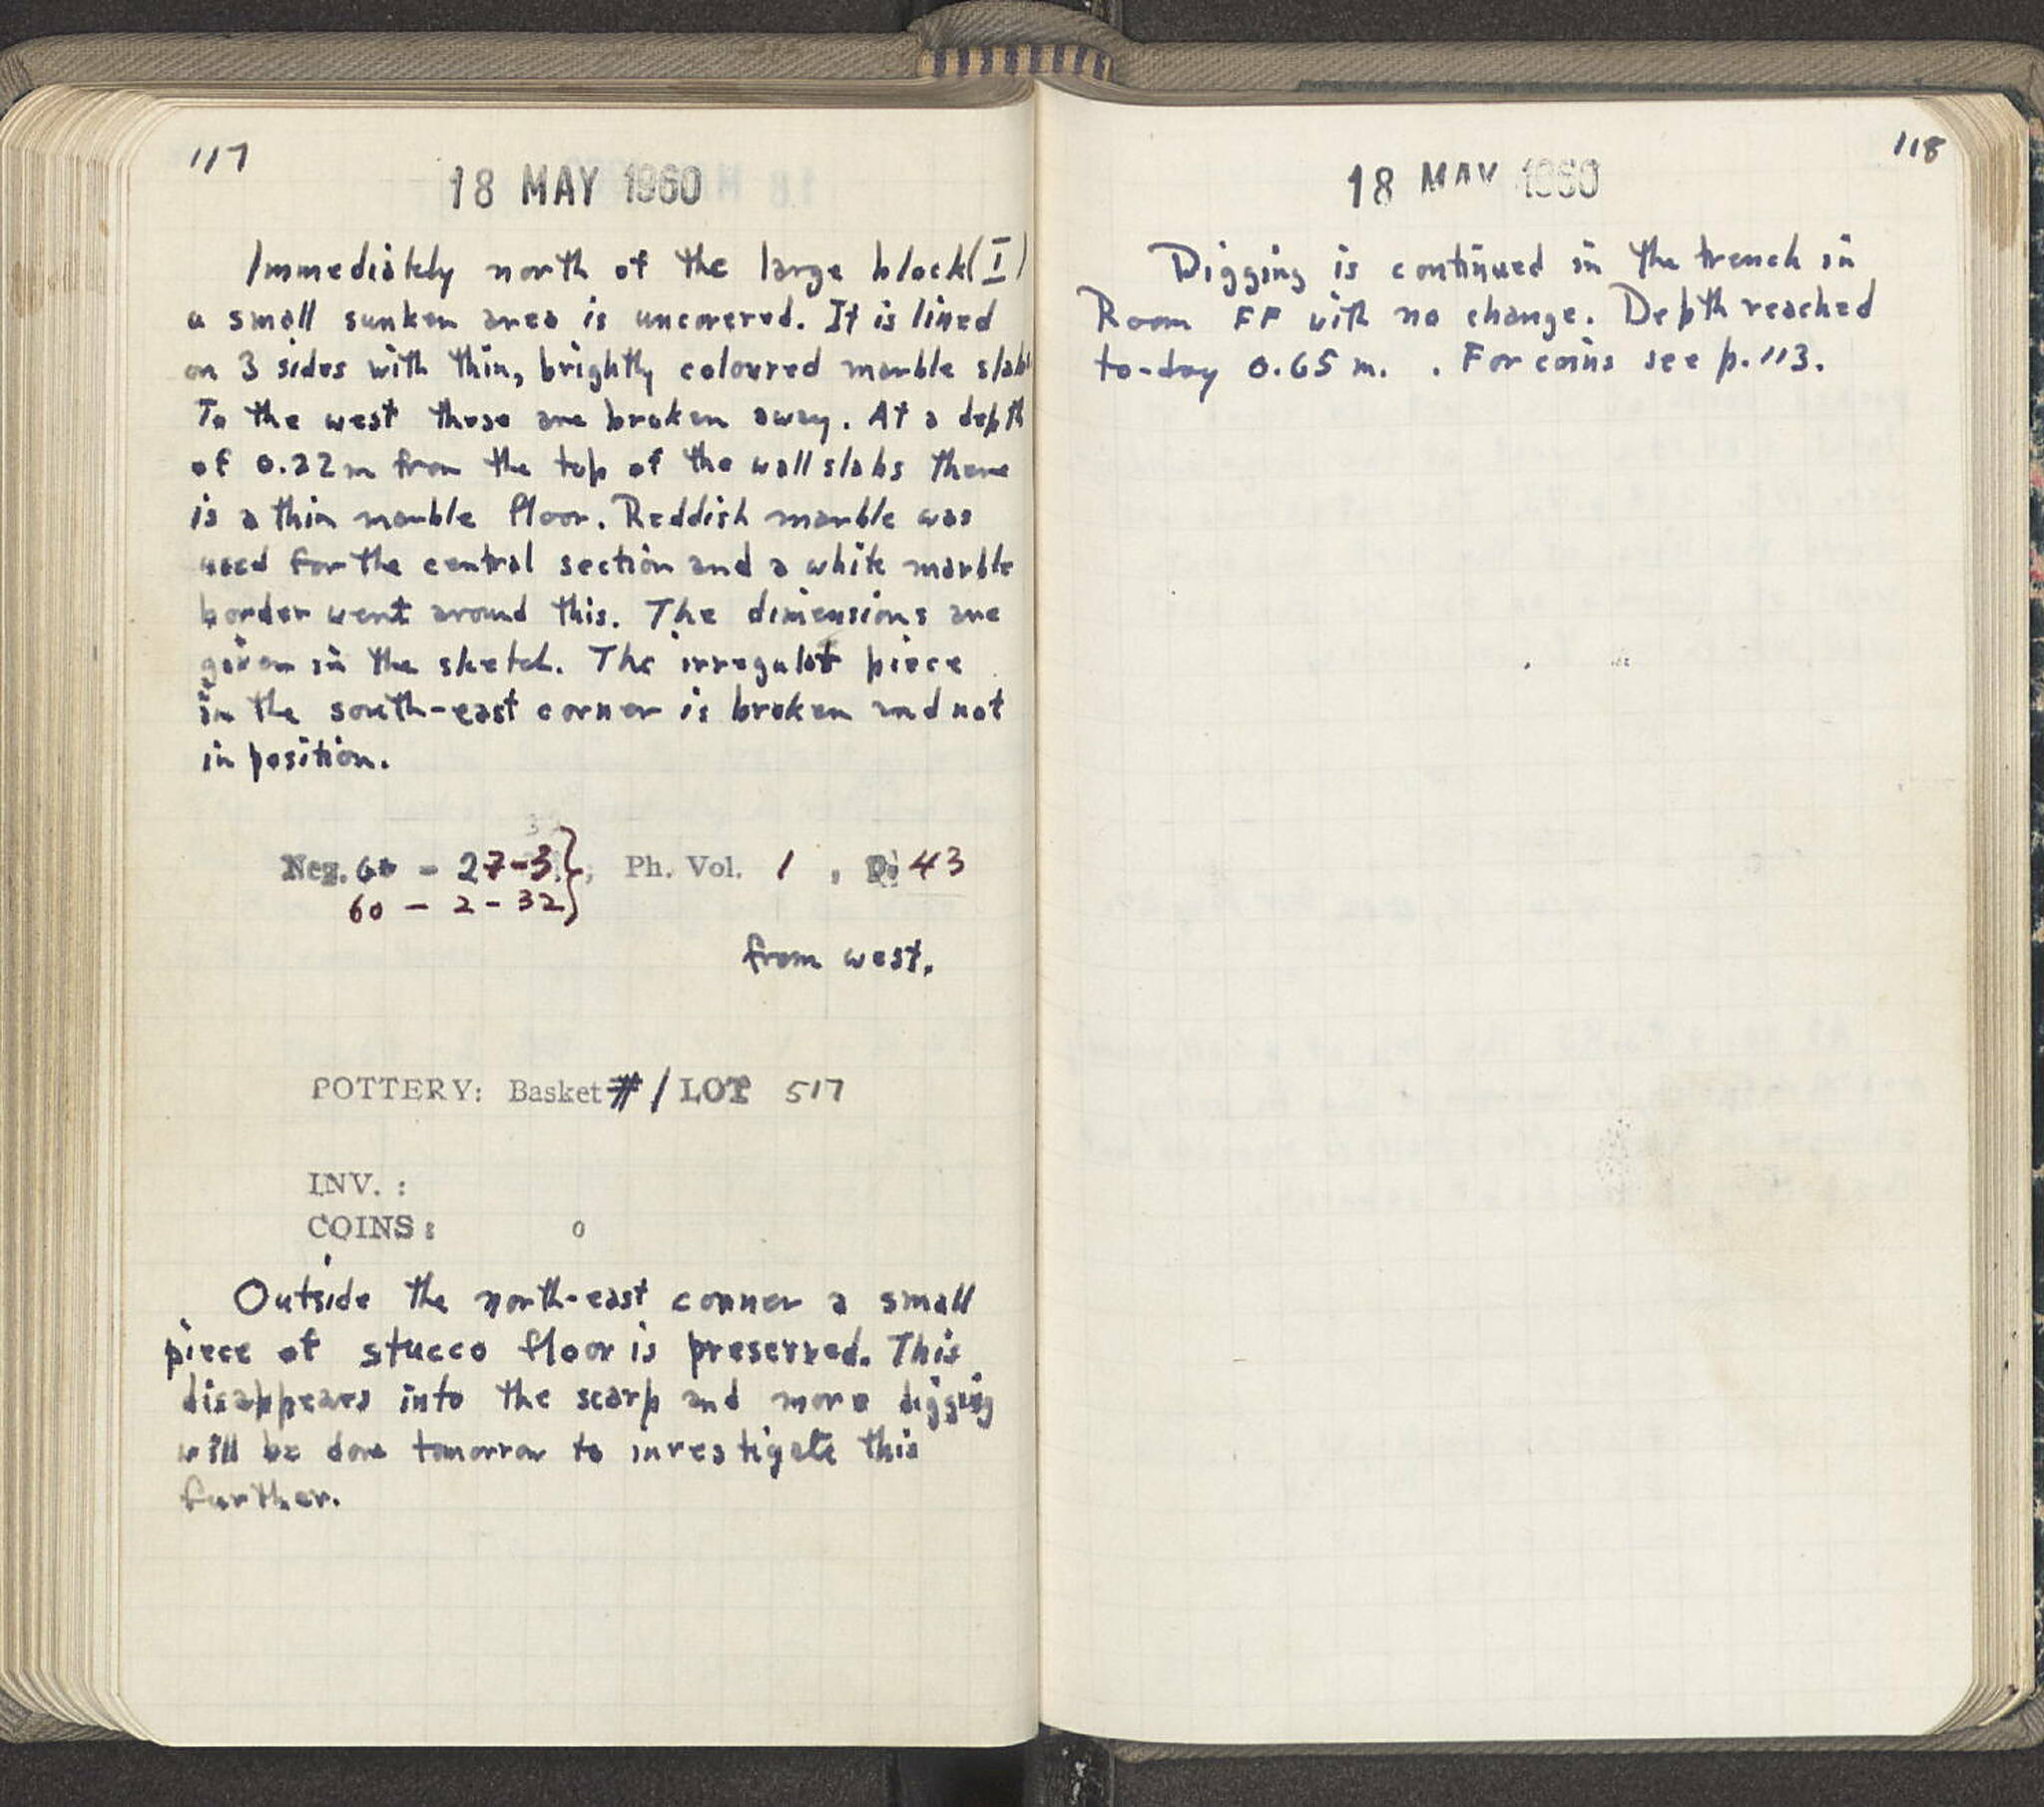 117
18 MAY 1960
Immediately north of the large block (I)
a small sunken area is uncovered. It is lined
on 3 sides with thin, brightly coloured marble slabs
To the west these are broken away. At a depth
of 0.22 m from the top of the wall slabs there
is a thin marble floor. Reddish marble was
used for the central section and a white marble
border went around this. The dimensions are
given in the sketch. The irregular piece
in the south-east corner is broken and not
in position.
Neg. 60 - 27-3 }, Ph. Vol. 1, P. 43
60 - 2 - 32 }
from west.
POTTERY: Basket # / LOT 517
INV. :
COINS: 0
Outside the north-east corner a small
piece of stucco floor is preserved. This
disappears into the scarp and more digging
will be done tomorrow to investigate this
further.
118
18 MAY 1960
Digging is continued in the trench in
Room FF with no change. Depth reached
to-day 0.65 m. . For coins see p. 113.